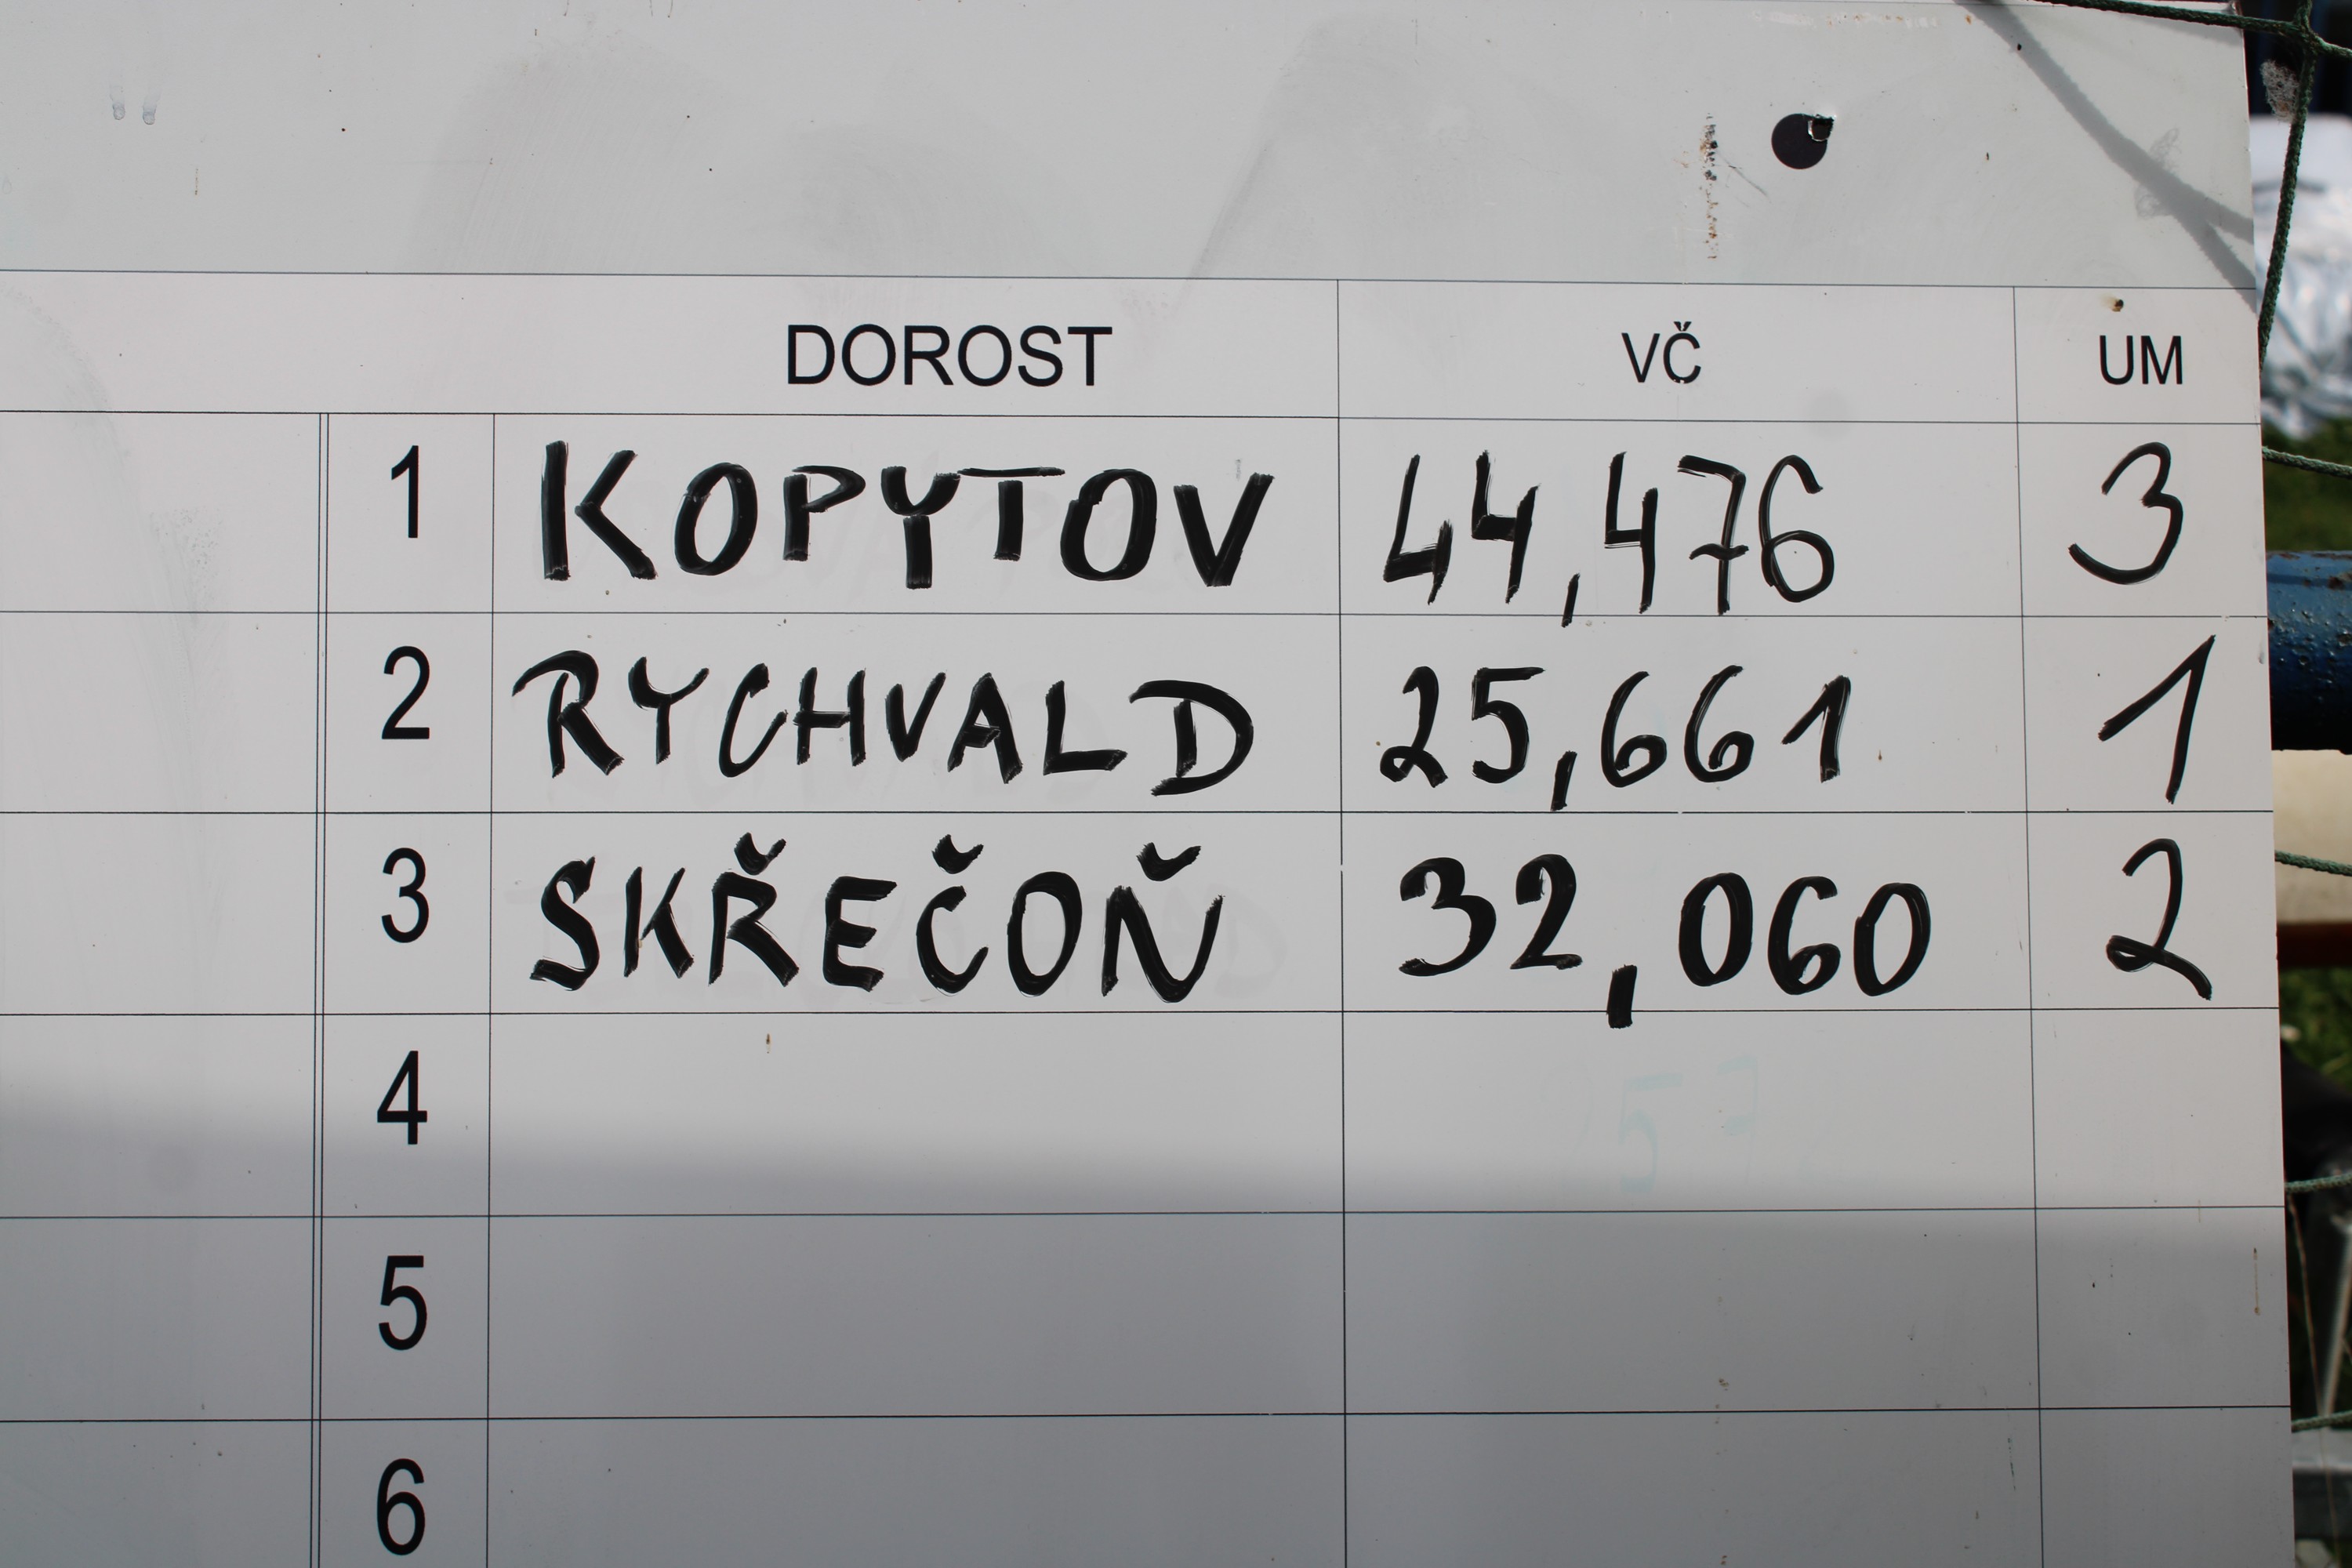 DOROST VČ UM
1 KOPYTOV 44,476 3
2 RYCHVALD 25,661 1
3 SKŘEČOŇ 32,060 2
4
5
6